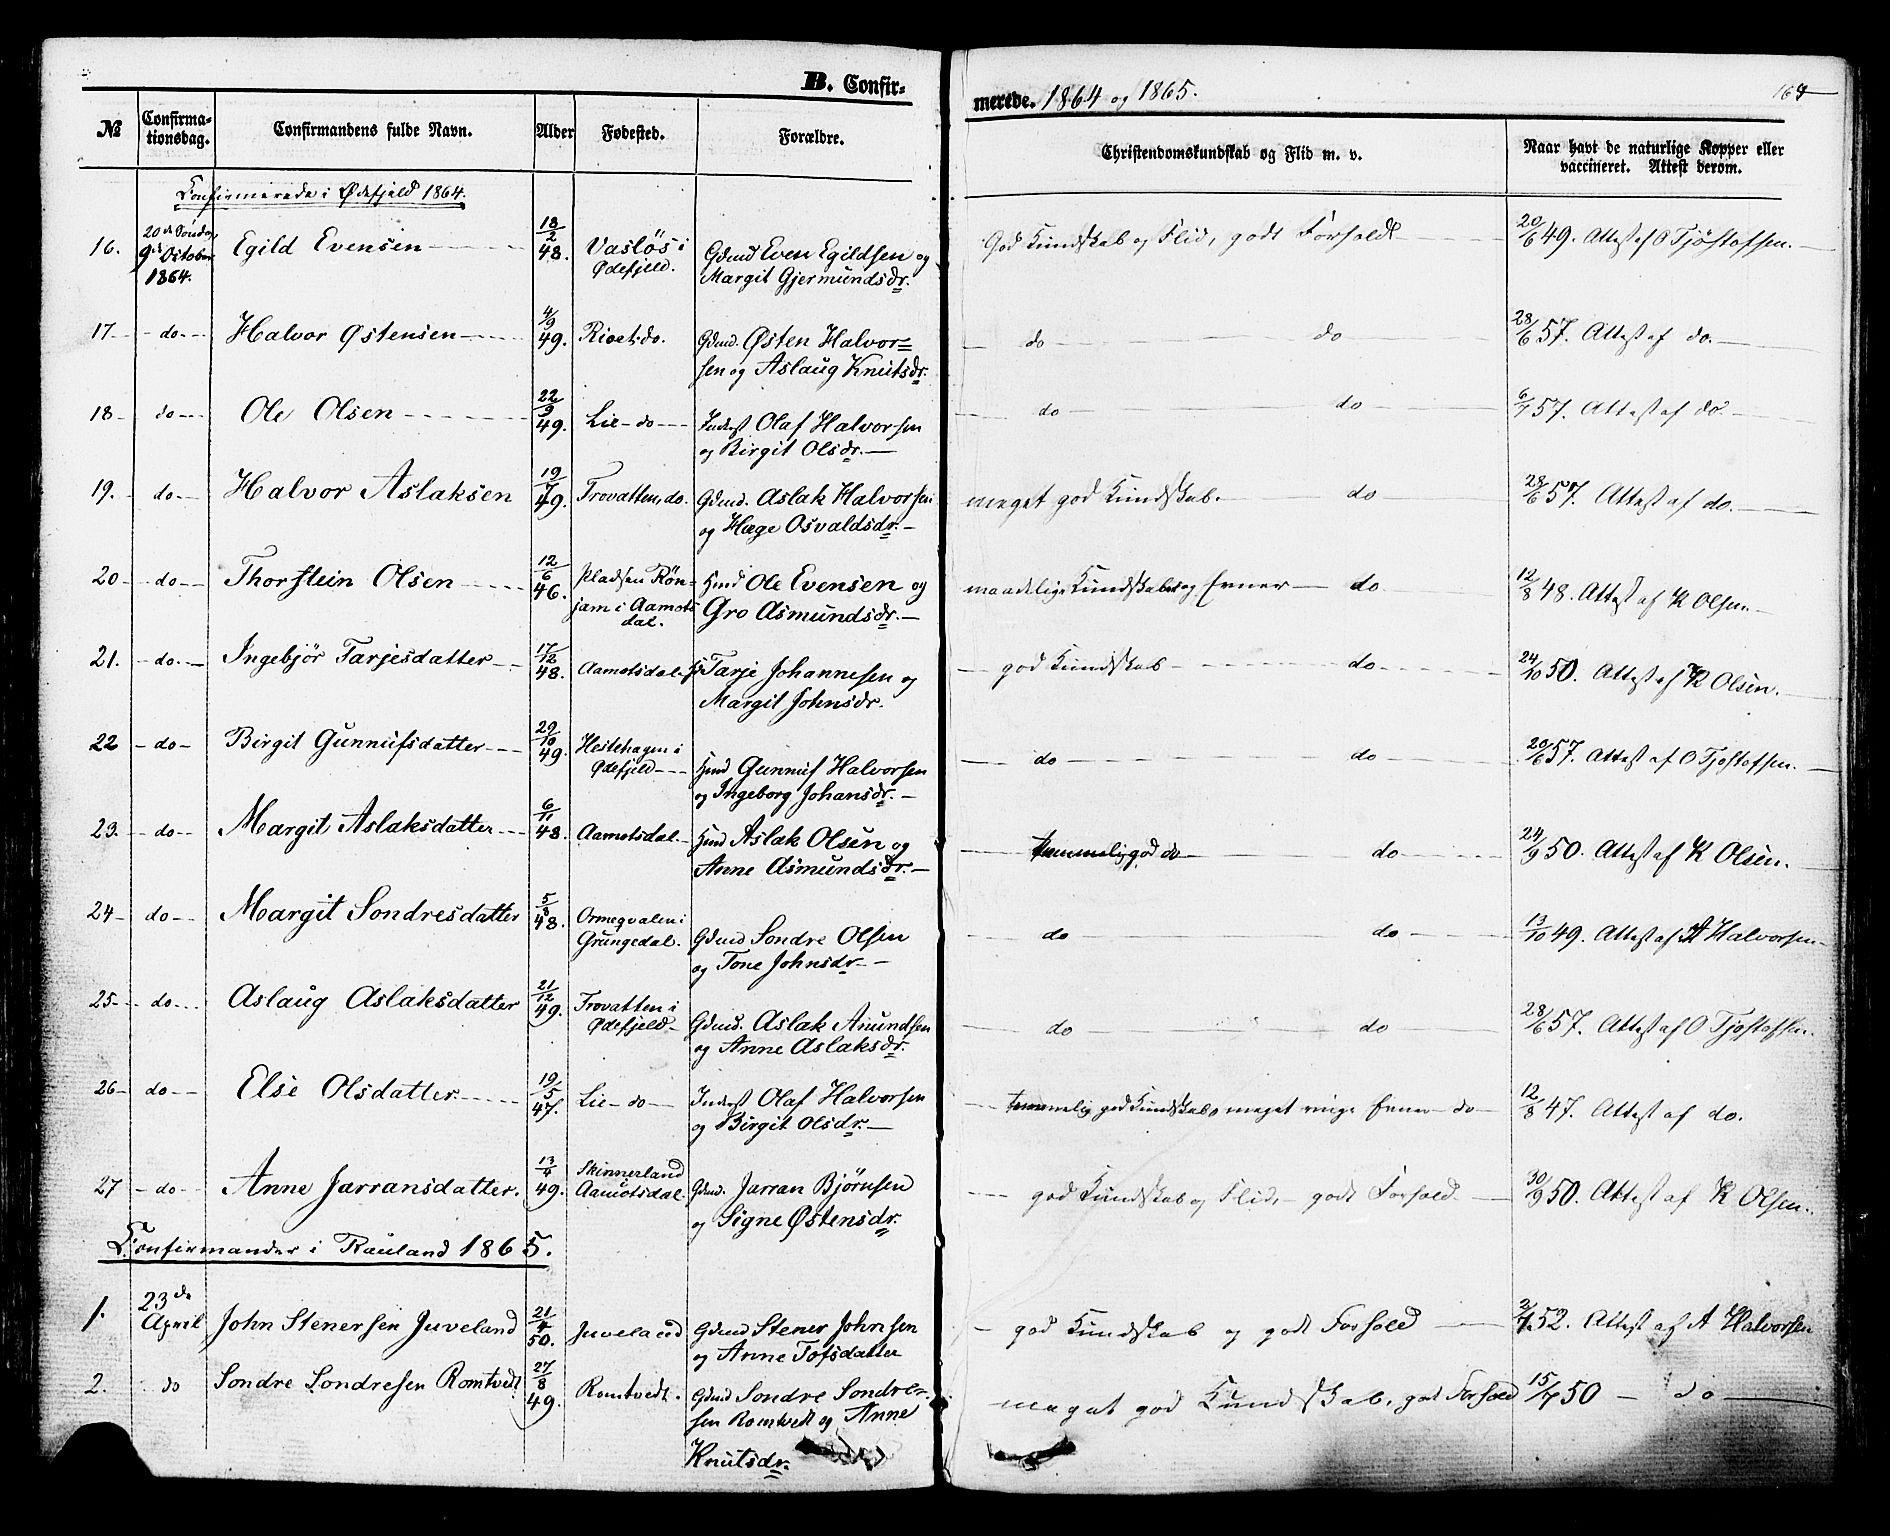 B. Confir-
merede. 1864 og 1865.
№ Confirma-tionsdag. Confirmandens fulde Navn. Alder Fødested. Forældre. Christendomskundskab og Flid m. v. Naar havt de naturlige Kopper eller vaccineret. Attest derom.
Confirmerede i Ødefjeld 1864.
16. 20de Søndag 9de October 1864. Egild Evensen 18/2 48. Vasløs i Gdmd Even Egildsen og God Kundskab og Flid, godt Forhold 20/6 49. Attest af O Tjøstofsen.
Ødefjeld. Margit Gjermundsdr.
17 do Halvor Østensen 4/9 49. Rioet do. Gdmd. Østen Halvor= do do 28/6 57. Attest af do.
sen og Aslaug Knutsdr.
18 do Ole Olsen 22/9 49. Lie do Inderst Olaf Halvorsen do do 6/7 57. Attest af do.
og Birgit Olsdr.
19. do Halvor Aslaksen 19/7 49. Trovatten, do. Gdmd. Aslak Halvorsen meget god Kundskab. do 28/6 57. Attest af do.
og Hæge Osvaldsdr.
20 do Thorstein Olsen 12/6 46. Pladsen Røn- Hmd Ole Evensen og maadelige Kundskaber og Evner do 12/8 48. Attest af K Olsen.
jam i Aamots Gro Asmundsdr.
dal.
21. do. Ingebjør Tarjesdatter 17/12 48. Aamotsdal. Tarje Johannesen og god Kundskab do 24/10 50. Attest af K Olsen.
Margit Johnsdr.
22 do Birgit Gunnufsdatter 29/10 49. Hestehagen i Hmd Gunnuf Halvorsen do do 20/6 57. Attest af O Tjostofsen.
Ødefjeld og Ingeborg Johansdr.
23. do Margit Aslaksdatter 6/11 48. Aamotsdal. Hmd Aslak Olsen og temmelig god do do 24/9 50. Attest af K Olsen.
Anne Asmundsdr.
24 do Margit Sondresdatter 5/8 48. Ormeqvalen i Gdmd Sondre Olsen do do 13/10 49. Attest af A Halvorsen
Grungedal. og Tone Johnsdr.
25 do Aslaug Aslaksdatter 21/12 49. Trovatten i Gdmd. Aslak Amundsen do do 28/6 57. Attest af O Tjostofsen.
Ødefjeld og Anne Aslaksdr.
26 do Else Olsdatter 19/5 47. Lie do Inderst Olaf Halvorsen temmelig god Kundskab, meget ringe Evner do 12/8 47. Attest af do.
og Birgit Olsdr.
27 do Anne Jarransdatter. 13/4 49. Skinnerland Gdmd. Jarran Bjørnsen god Kundskab og Flid, godt Forhold 30/9 50. Attest af K Olsen.
Aamotsdal og Signe Østensdr.
Confirmander i Rauland 1865.
1. 23de April John Stenersen Juveland 21/4 50. Juveland Gdmd Stener Johnsen god Kundskab og godt Forhold 52. Attest af A Halvorsen
og Anne Tofsdatter
2. do Sondre Sondresen Romtvedt 27/8 49. Romtvedt. Gdmd Sondre Sondre= meget god Kundskab, godt Forhold 15/7 50 do
sen Romtvedt og Anne
Knutsdr.